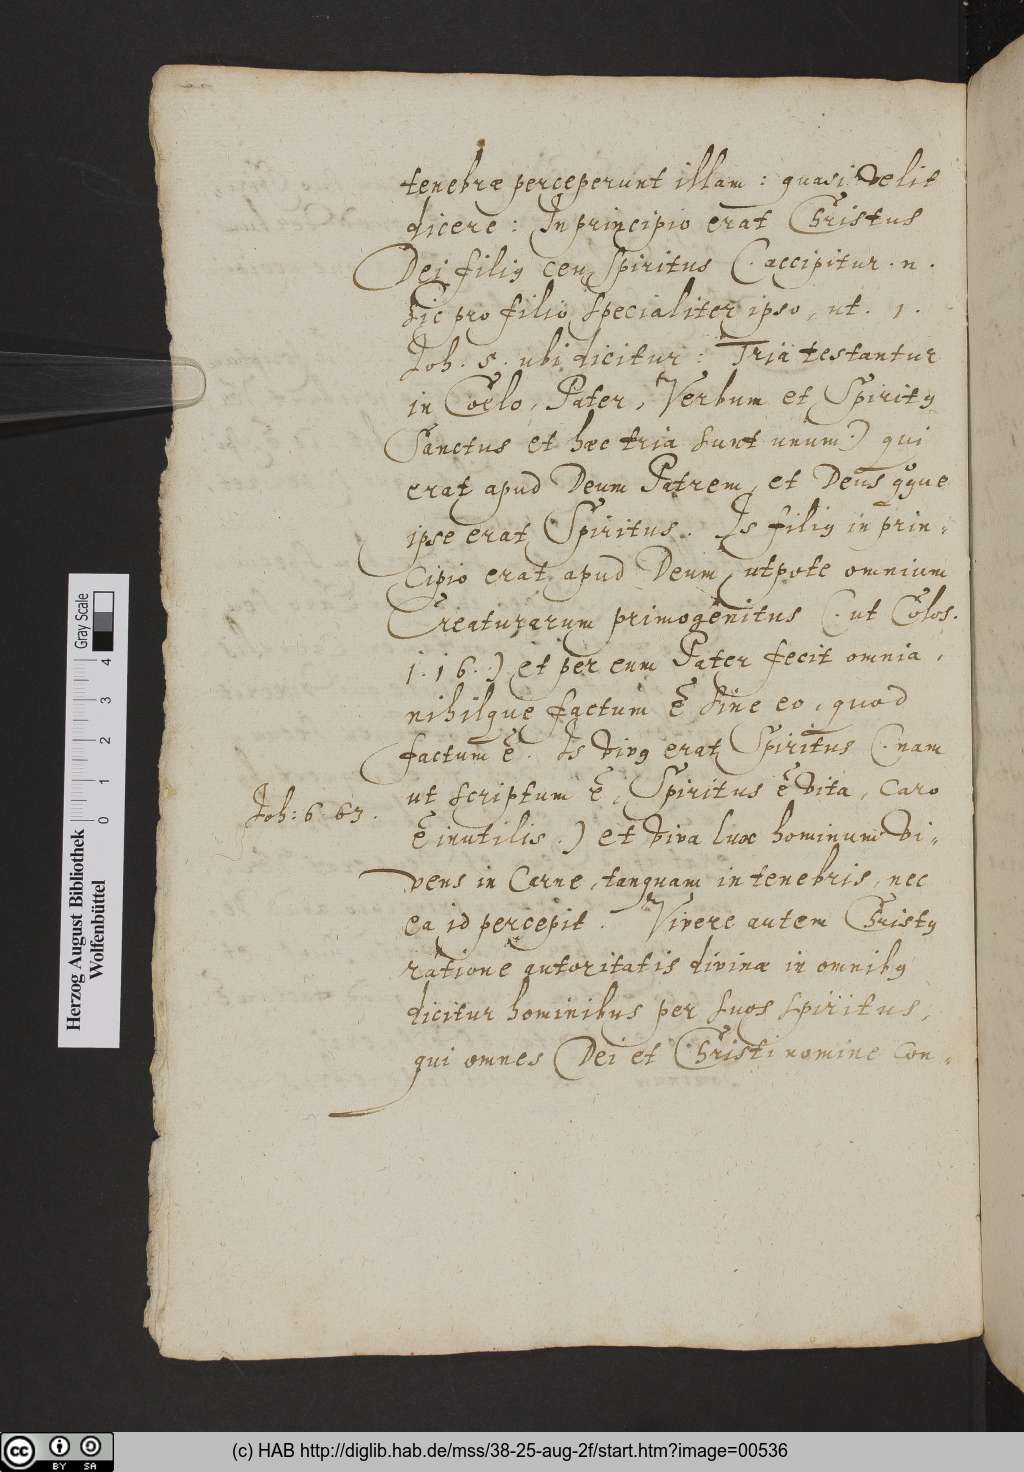 tenebræ perceperunt illam : quasi velit
dicere : In principio erat Christus
Dei filiꝰ ceu Spiritus (. accipitur . n .
hic pro filio specialiter ipso, ut . 1 .
Joh . 5 . ubi dicitur : Tria testantur
in Coelo, Pater, Verbum et Spiritꝰ
Sanctus et hæc tria sunt unum .) qui
erat apud Deum Patrem, et Deus qq̃ue
ipse erat Spiritus . Is filiꝰ in prin-
cipio erat apud Deum, utpote omnium
Creaturarum primogenitus (. ut Colos.
1 . 16 .) et per eum Pater fecit omnia,
nihilque factum ẽ sine eo, quod
factum ẽ . Is vivꝰ erat Spiritus (. nam
Joh : 6 . 63 .
ut scriptum ẽ, Spiritus ẽ vita, caro
ẽ inutilis .) et viva lux hominum vi-
vens in Carne, tanquam in tenebris, nec
ea id percepit . Vivere autem Christꝰ
ratione autoritatis divinæ in omnibꝰ
dicitur hominibus per suos spiritus,
qui omnes Dei et Christi nomine con-
Herzog August Bibliothek
Wolfenbüttel
0 1 2 3 4
Gray Scale
cc BY SA
(c) HAB http://diglib.hab.de/mss/38-25-aug-2f/start.htm?image=00536